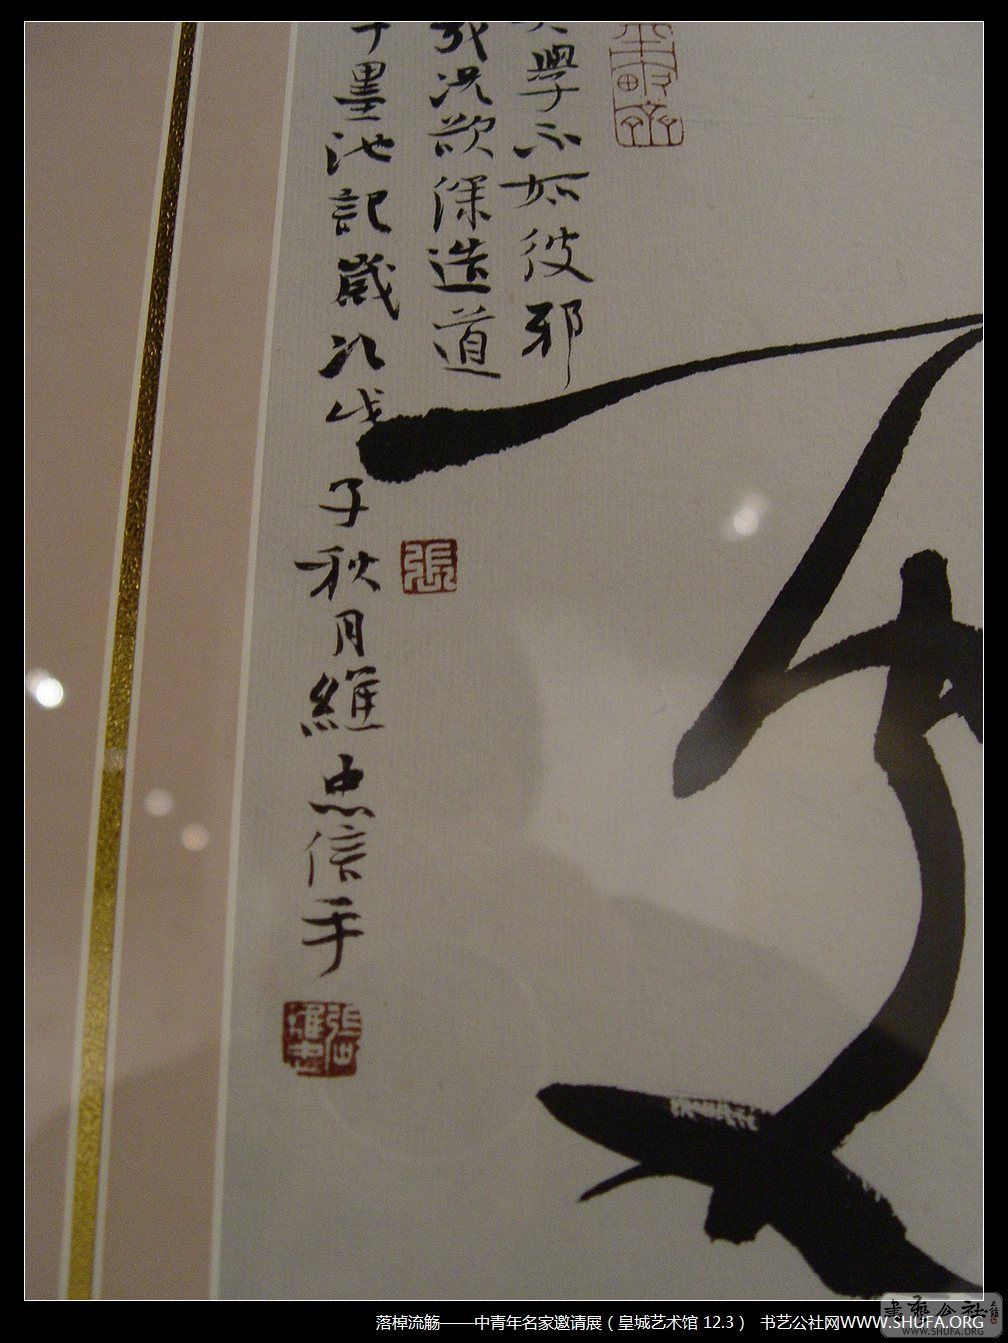 學不如彼邪
哉況欲深造道
墨池記歲次戊子秋月維忠信手
張
落棹流觞——中青年名家邀请展（皇城艺术馆 12.3） 书艺公社网WWW.SHUFA.ORG
書藝公社
WWW.SHUFA.ORG